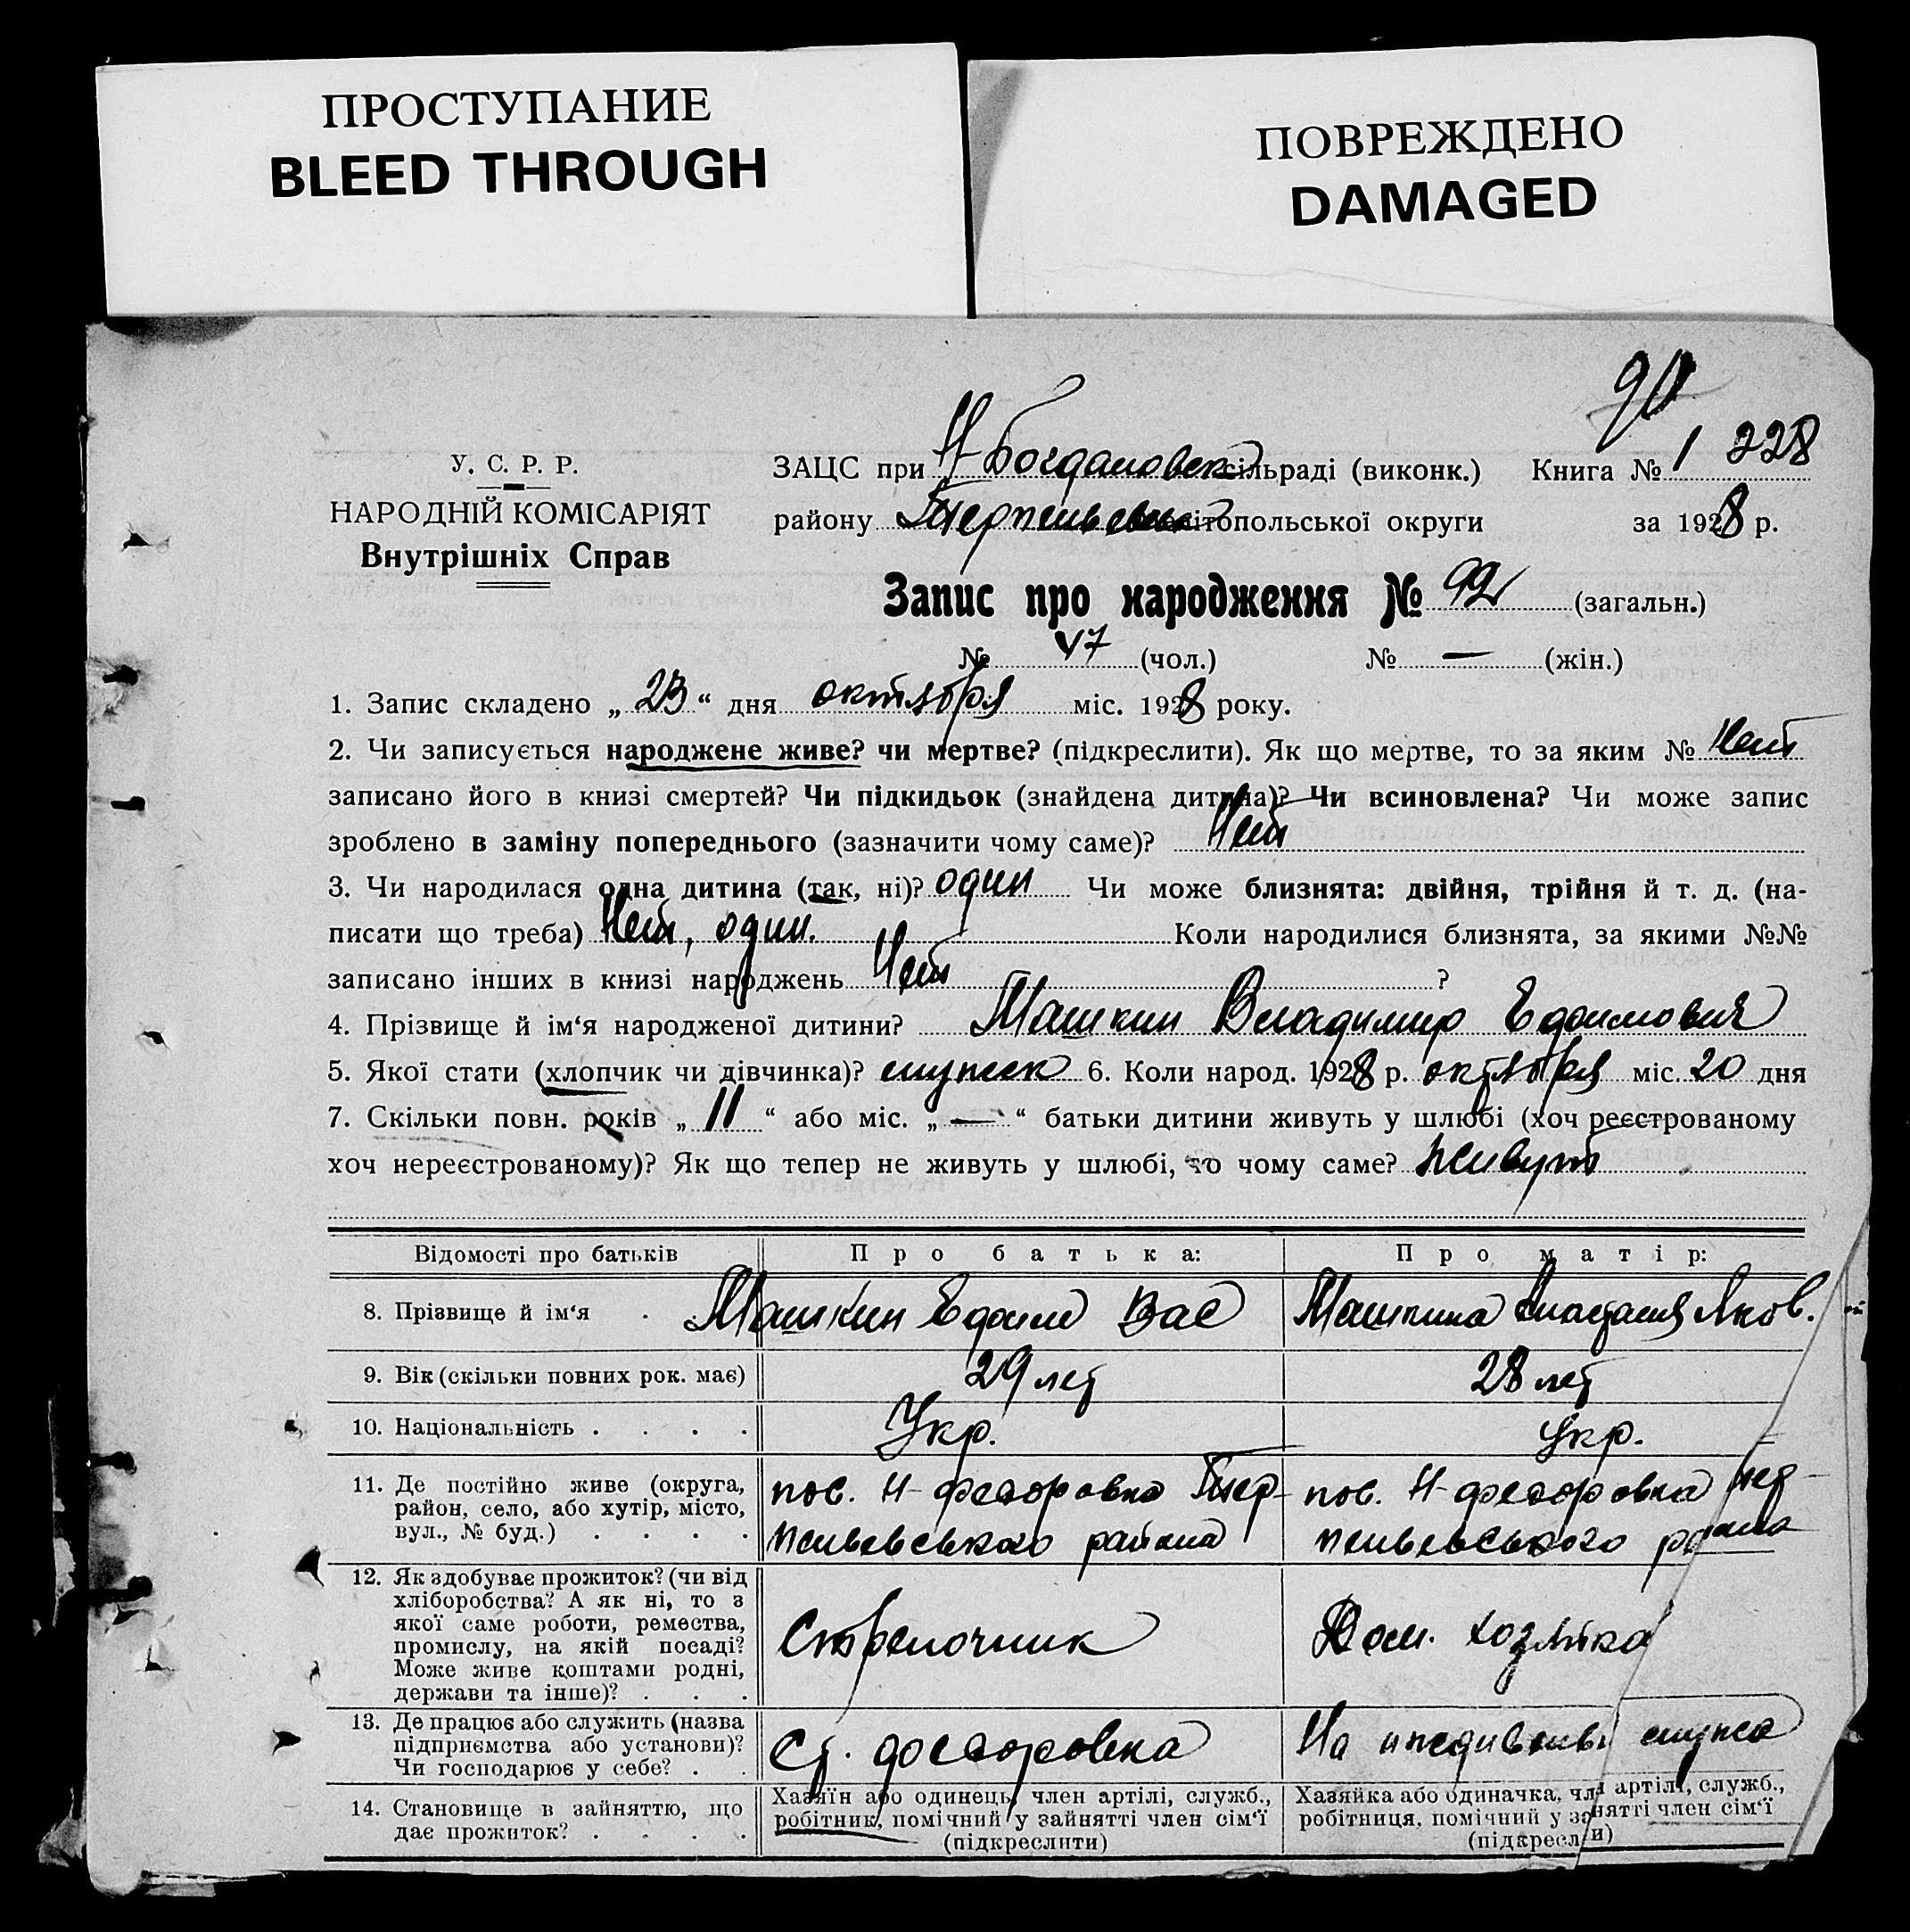 ПРОСТУПАНИЕ
BLEED THROUGH
ПОВРЕЖДЕНО
DAMAGED
90
У. С. Р. Р.
НАРОДНІЙ КОМІСАРІЯТ
Внутрішніх Справ
ЗАЦС при Н-Богдановск сільраді (виконк.) Книга № 1 228
району Терпеньевск мелітопольської округи за 1928 р.
Запис про народження № 92 (загальн.)
№ 47 (чол.) № — (жін.)
1. Запис складено „ 23 “ дня октября міс. 1928 року.
2. Чи записується народжене живе? чи мертве? (підкреслити). Як що мертве, то за яким № Нет
записано його в книзі смертей? Чи підкидьок (знайдена дитина)? Чи всиновлена? Чи може запис
зроблено в заміну попереднього (зазначити чому саме)? Нет
3. Чи народилася одна дитина (так, ні)? один Чи може близнята: двійня, трійня й т. д. (на-
писати що треба) Нет, один. Коли народилися близнята, за якими №№
записано інших в книзі народжень Нет ?
4. Прізвище й ім‘я народженої дитини? Машкин Владимир
5. Якої стати (хлопчик чи дівчинка)? 6. Коли народ. 1928 р. октября міс. 20 дня
7. Скільки повн. років „ 11 “ або міс. „ — “ батьки дитини живуть у шлюбі (хоч реєстрованому
хоч нереєстрованому)? Як що тепер не живуть у шлюбі, то чому саме? живут
Відомості про батьків Про батька: Про матір:
8. Прізвище й ім‘я . Машкин Вас Машкина Анастасия Яков.
9. Вік (скільки повних рок. має) 29 лет 28 лет
10. Національність . . . . Укр. Укр.
11. Де постійно живе (округа, район, село, або хутір, місто, вул., № буд.) . . . .
пос. Н-Федоровка Тер-
пеньевського района
пос. Н-Федоровка Тер-
пеньевського района
12. Як здобуває прожиток? (чи від
хліборобства? А як ні, то з
якої саме роботи, ремества,
промислу, на якій посаді?
Може живе коштами родні,
держави та інше)? . . .
Стрелочник
Дом. хозяйка
13. Де працює або служить (назва
підприємства або установи)?
Чи господарює у себе? . .
Ст. Федоровка
На иждивеньи мужа
14. Становище в зайняттю, що
дає прожиток? . . . .
Хазяїн або одинець, член артілі, служб.,
робітник, помічний у зайнятті член сім‘ї
(підкреслити)
Хазяйка або одиначка, член артілі, служб.,
робітниця, помічний у зайнятті член сім‘ї
(підкреслити)